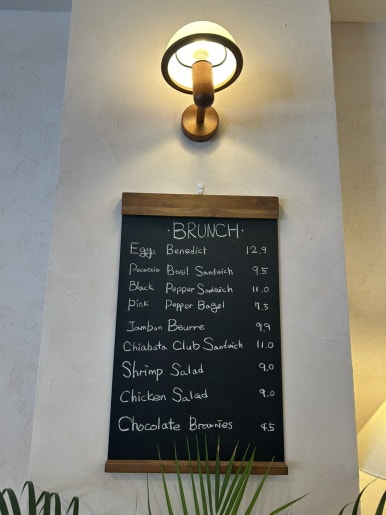 ·BRUNCH·
Egg Benedict 12.9
Pocaccia Basil Sandwich 9.5
Black Pepper Sandwich 11.0
Pink Pepper Bagel 7.5
Jambon Beurre 9.9
Chiabata Club Sandwich 11.0
Shrimp Salad 9.0
Chicken Salad 9.0
Chocolate Brownies 4.5